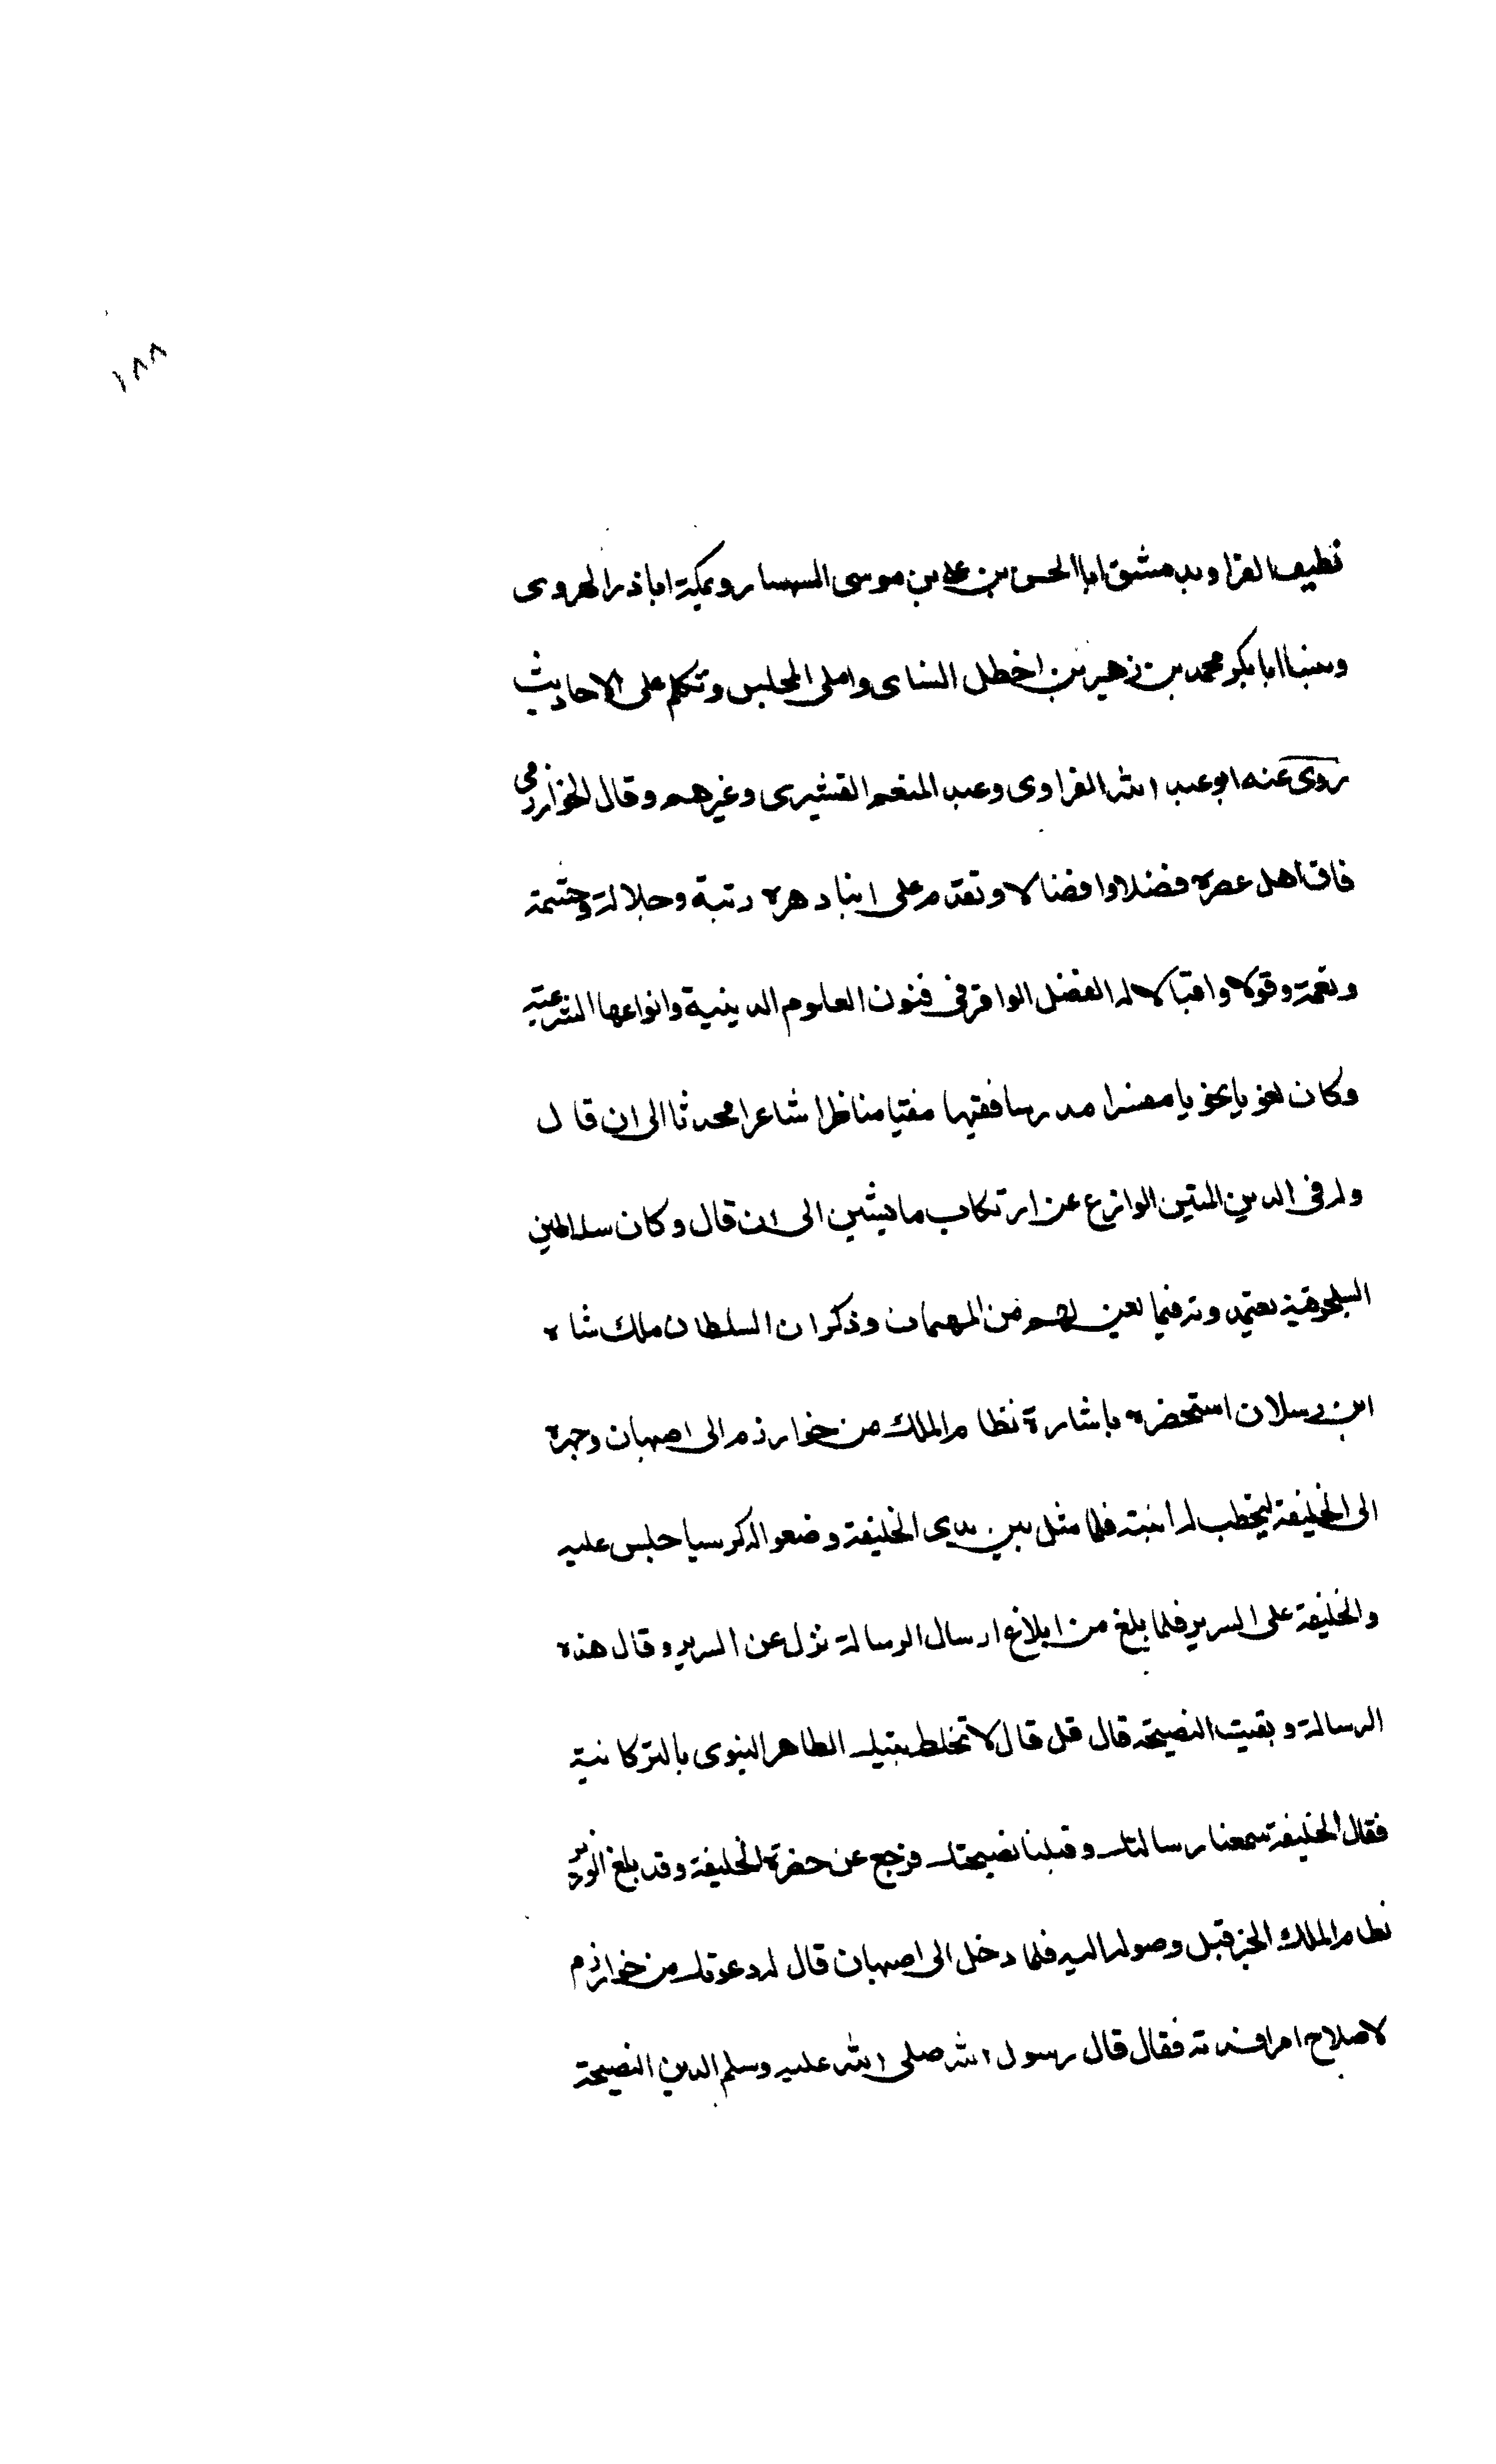 ١٨٨
نظيف الفرا وبدمشق ابا الحسن بن على بن موسى السمسار وبمكة اباذر الهروى
وبنسا ابا بكر محمد بن زهير بن اخطل النساى واملى المجلس وتكلم على الاحاديث
روى عنه ابو عبد الله الفراوى وعبد المنعم القشيرى وغيرهم وقال الخوارزمى
فاق اهل عصره فضلا وافضالا وتقدم على ابنا دهره رتبة وجلالة وحشمة
ونعمة وقبولا واقبالا له الفضل الوافر فى فنون العلوم الدينية وانواعها الشرعية
وكان لغويا نحويا مفسرا مدرسا فقيها مفتيا مناظرا شاعرا محدثا الى ان قال
وله فى الدين المتين الوازع عن ارتكاب ما يشين الى ان قال وكان سلاطين
السلجوقية يعتمدونه فيما يعن لهم من المهمات وذكر ان السلطان ملك شاه
ابن رسلان استحضره باشارة نظام الملك من خوارزم الى اصبهان وجهزه
الى الخليفة ليخطب له ابنته فلما مثل بين يدى الخليفة وضعوا له كرسيا جلس عليه
والخليفة على السرير فلما بلغ من ابلاغ ارسال الرسالة نزل عن السرير وقال هذه
الرسالة وبقيت النصيحة قال قل قال لا تخلط بيتك الطاهر النبوى بالتركمانية
فقال الخليفة سمعنا رسالتك وقبلنا نصيحتك فرجع عن حضرة الخليفة وقد بلغ الوزير
نظام الملك الخبر قبل وصوله اليه فلما دخل الى اصبهان قال له دعوتك من خوارزم
لاصلاح امر افسدته فقال قال رسول الله صلى الله عليه وسلم الدين النصيحة